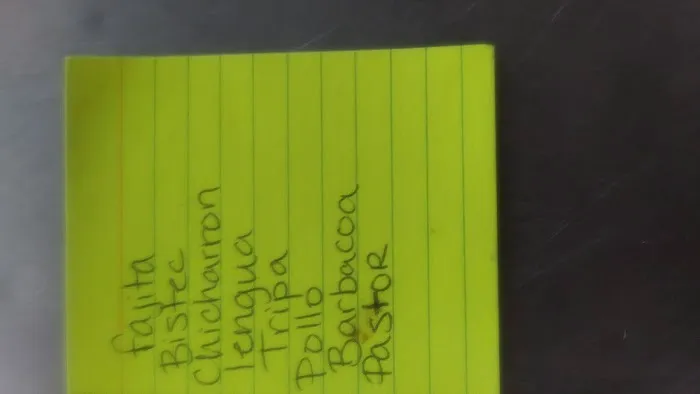 fajita
Bistec
Chicharron
lengua
Tripa
Pollo
Barbacoa
PastoR